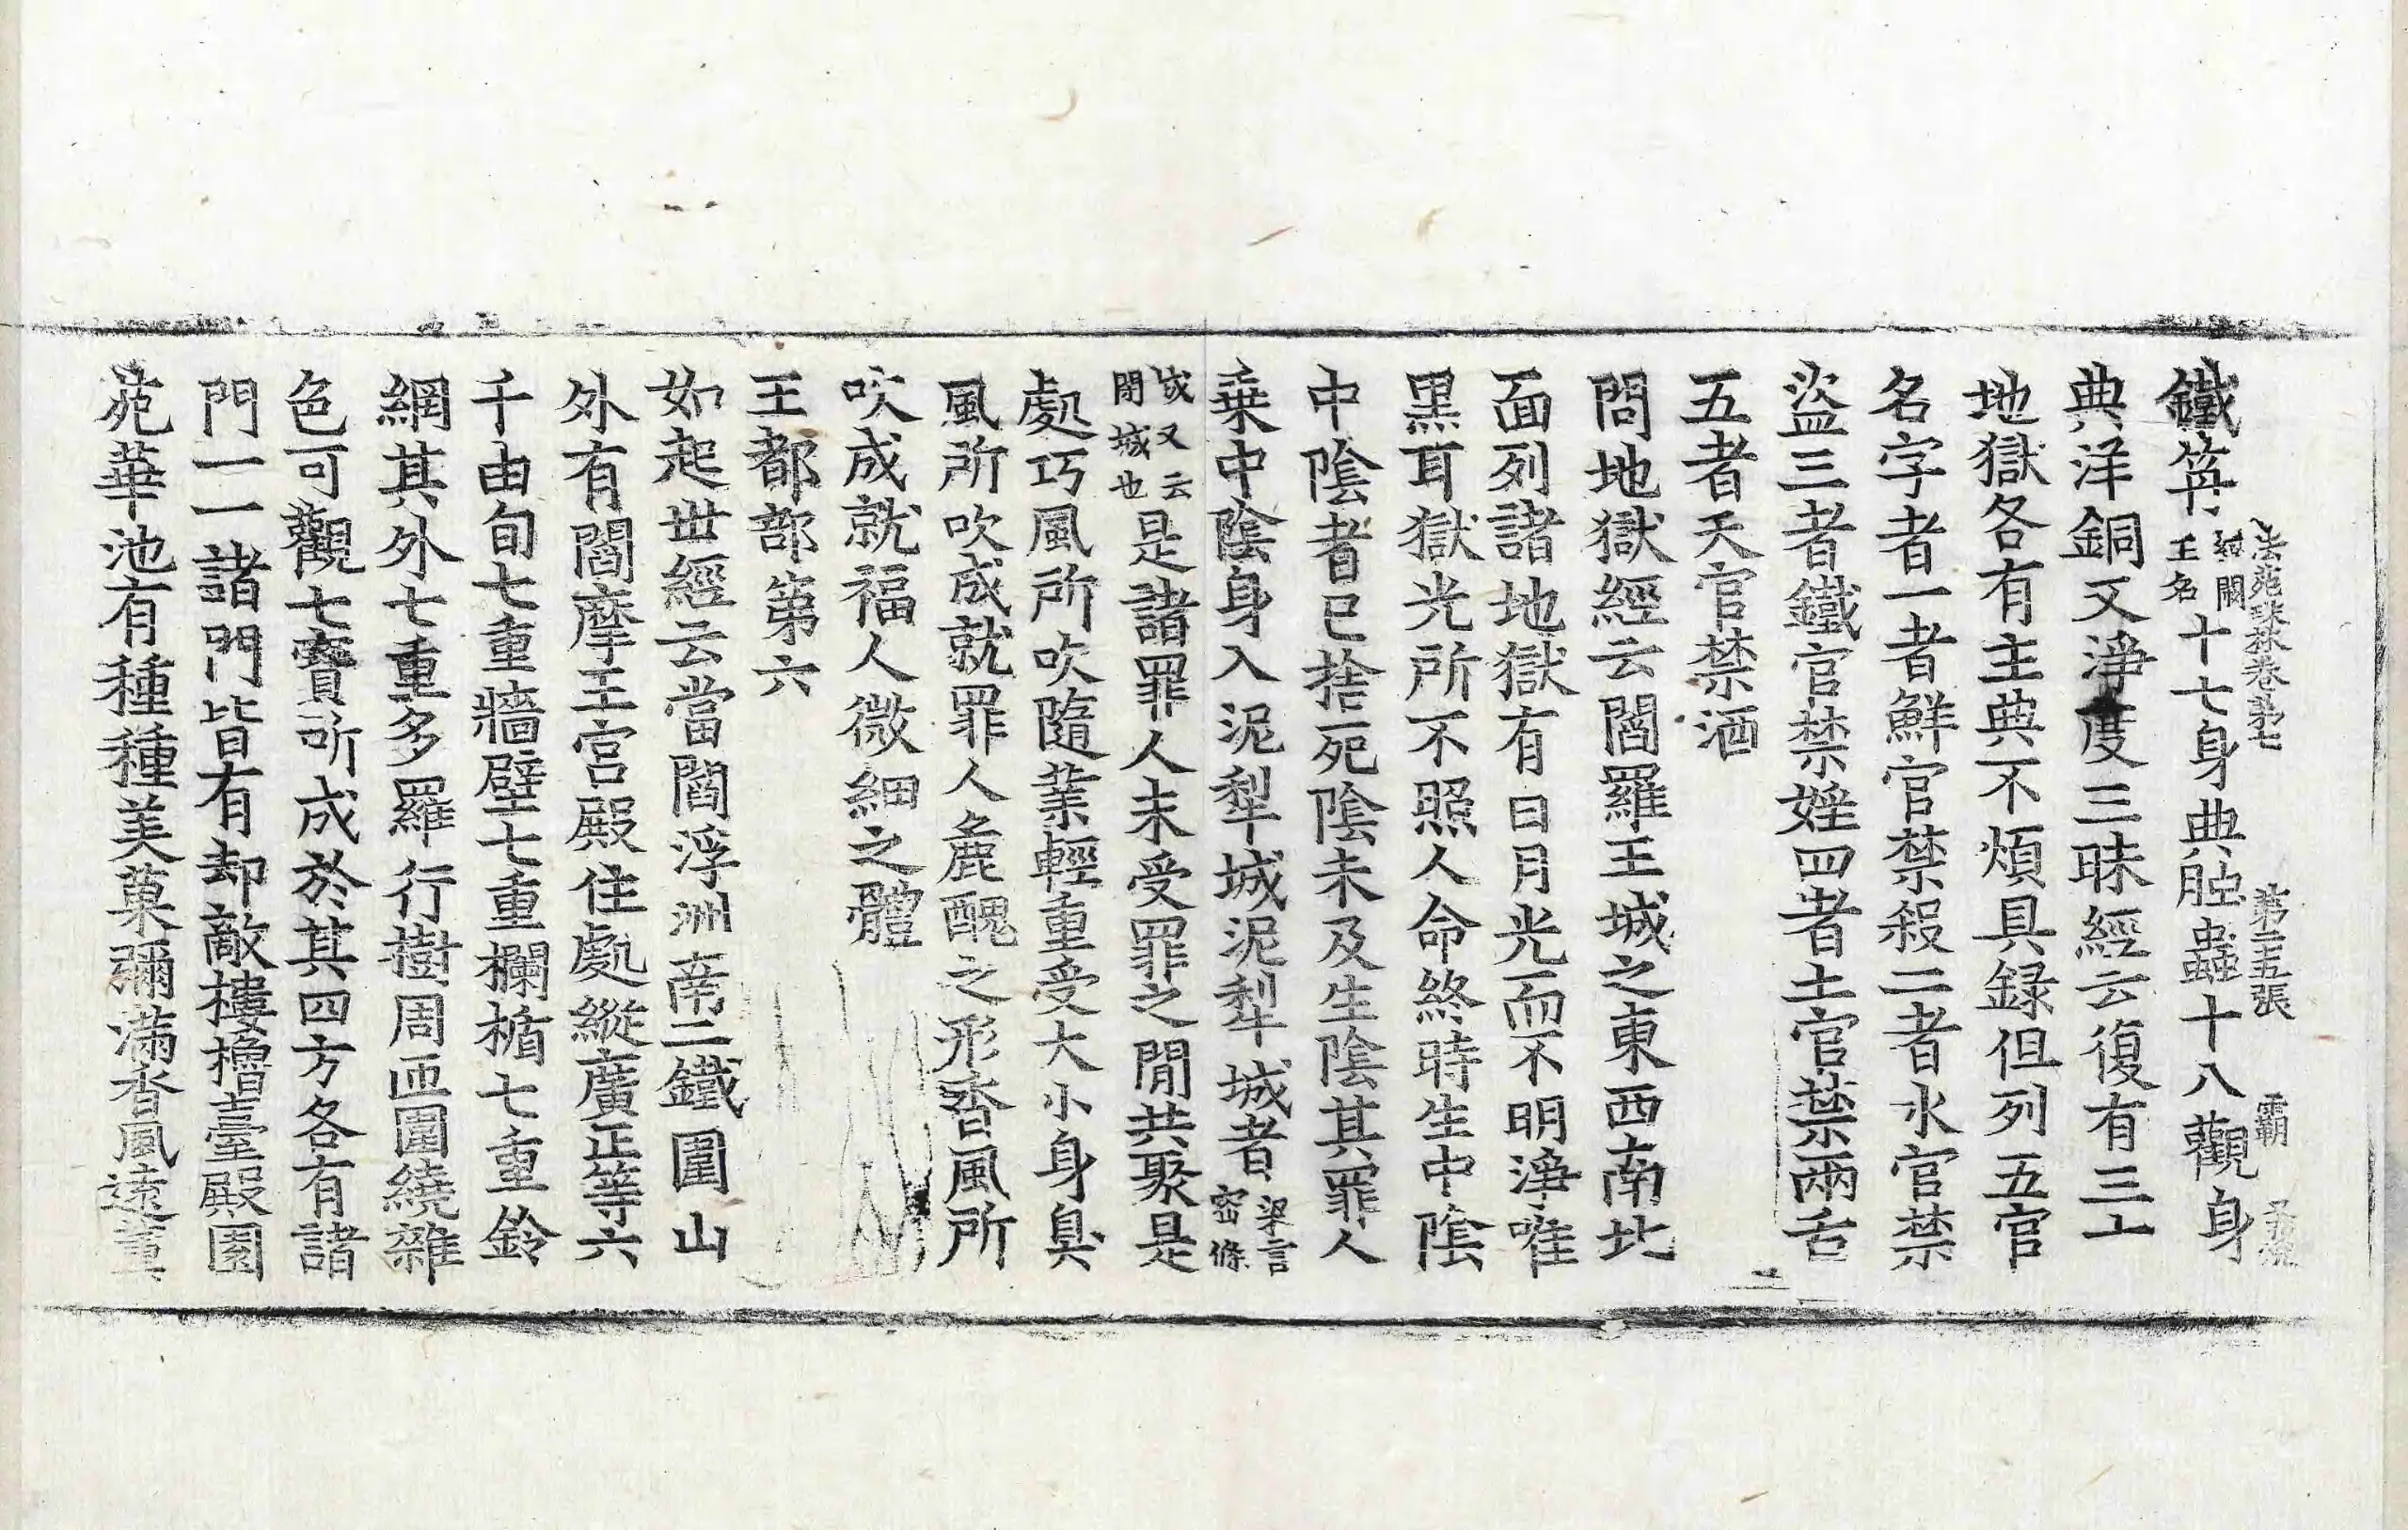 法苑珠林卷第七 第二十五張 霸
鐵笮王名十七身典䏣蟲十八觀身
典洋銅又淨度三昧經云復有三十
地獄各有主典不煩具録但列五官
名字者一者鮮官禁殺二者水官禁
盜三者鐵官禁婬四者土官禁兩舌
五者天官禁酒
問地獄經云閻羅王城之東西南北
面列諸地獄有日月光而不明淨唯
黒耳獄光所不照人命終時生中陰
中陰者已捨死陰未及生陰其罪人
乗中陰身入泥犁城泥犁城者梁言寄係
城又云閉城也是諸罪人未受罪之閒共聚是
處巧風所吹隨業輕重受大小身臭
風所吹成就罪人麁醜之形香風所
吹成就福人微細之體
王都部第六
如起世經云當閻浮洲南二鐵圍山
外有閻摩王宮殿住處縱廣正等六
千由旬七重牆壁七重欄楯七重鈴
網其外七重多羅行樹周匝圍繞雜
色可觀七寶所成於其四方各有諸
門一一諸門皆有却敵樓櫓臺殿園
苑華池有種種美菓彌滿香風遠薫